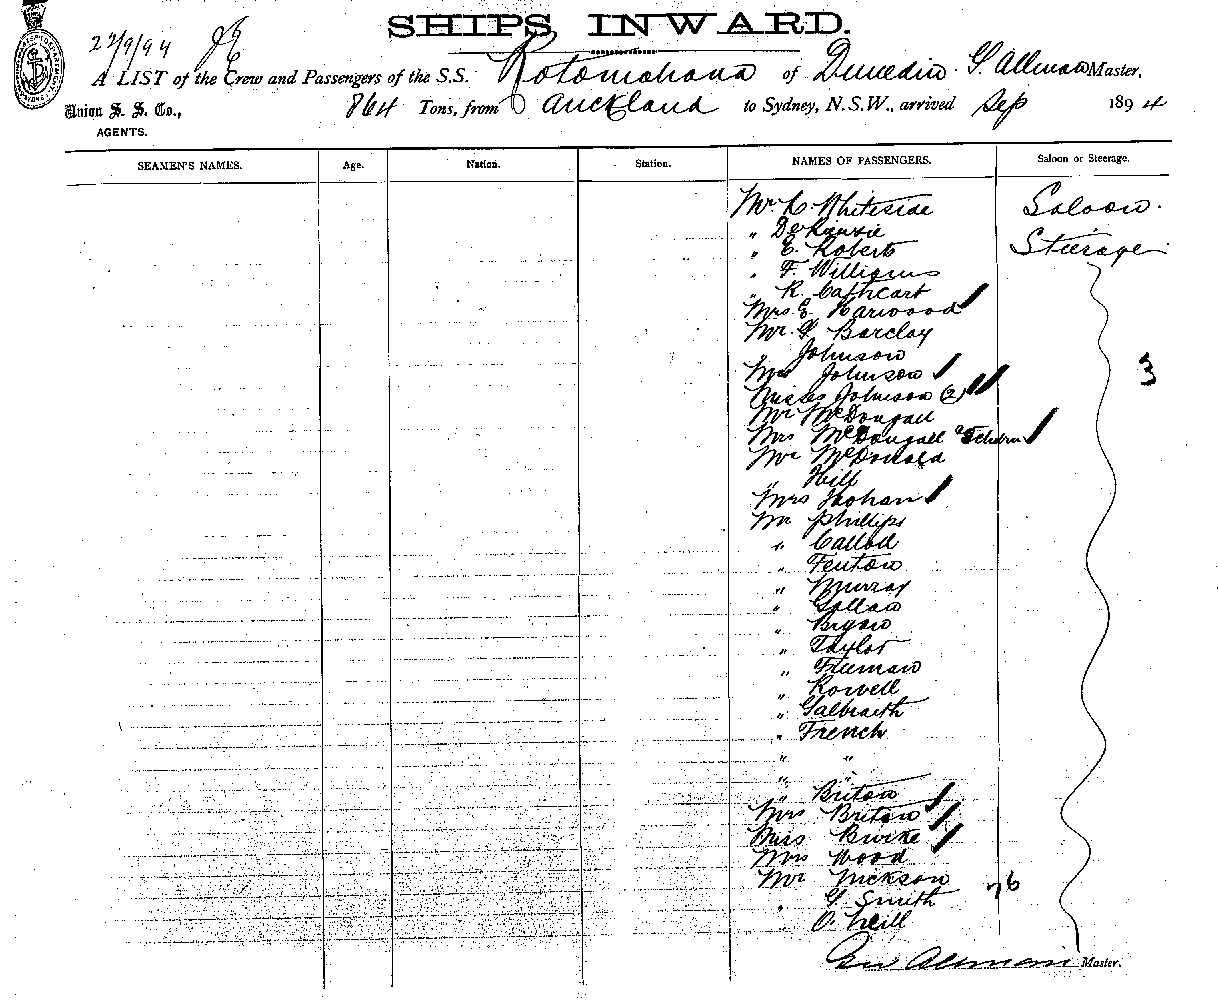 SHIPS INWARD.
22/9/94
A LIST of the Crew and Passengers of the S.S. Rotomahana of Dunedin G. Allman Master,
Union S. S. Co., 864 Tons, from Auckland to Sydney, N.S.W., arrived Sep 1894
AGENTS.
SEAMEN'S NAMES. Age. Nation. Station. NAMES OF PASSENGERS. Saloon or Steerage.
Mr. Whiteside Saloon.
" Steerage
" E. Roberts
" F. Williams
" R. Cathcart
Mrs E. Harwood
Mr. G Barclay
" Johnson
Mrs Johnson 3
Misses Johnson (2)
Mr McDougall
Mrs McDougall
Mr McDonald
" Hill
Mrs
Mr Phillips
"
" Fenton
" Murray
" Gollan
" Bryan
" Taylor
" Freeman
" Rowell
" Galbraith
" French
" "
" "
" Briton
Mrs Briton
Miss Burke
Mrs Wood
Mr
" G. Smith
O. Neill
Geo Allman Master.